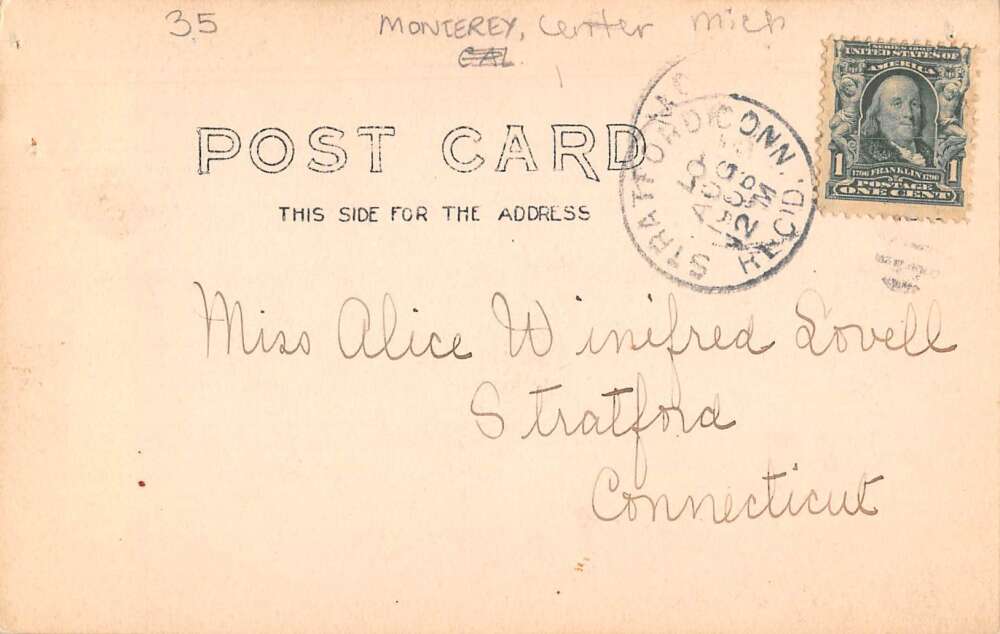 35 MONTEREY, Center Mich
CAL.
POST CARD
THIS SIDE FOR THE ADDRESS
STRATFORD CONN.
REC'D.
SERIES 1902
UNITED STATES OF
AMERICA
1 1706 FRANKLIN 1790 1
POSTAGE
ONE CENT
Miss Alice Winifred Lovell
Stratford
Connecticut